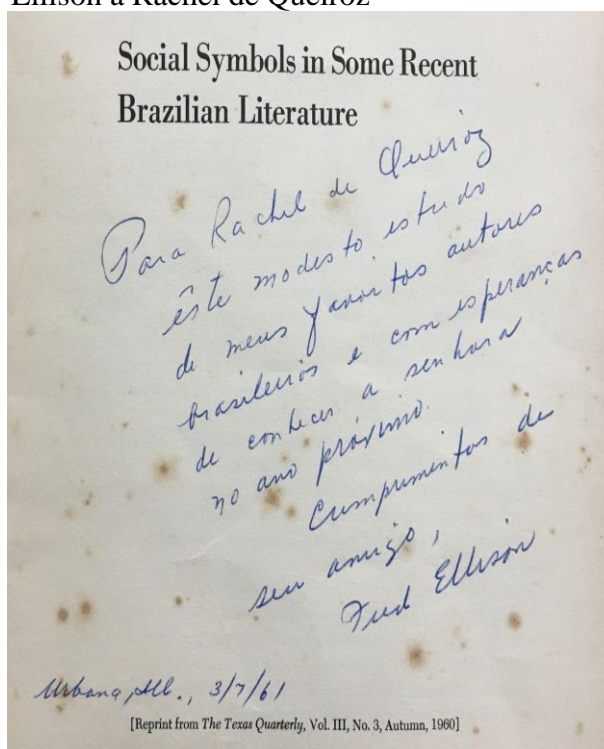 Ellison a Rachel de Queiroz
Social Symbols in Some Recent
Brazilian Literature
Para Rachel de Queiroz
êste modesto estudo
de meus favoritos autores
brasileiros e com esperanças
de conhecer a senhora
no ano próximo.
Cumprimentos de
seu amigo,
Fred Ellison
Urbana, Ill., 3/7/61
[Reprint from The Texas Quarterly, Vol. III, No. 3, Autumn, 1960]